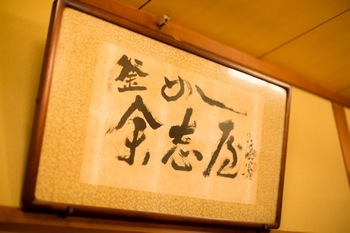 釜めし
余志屋